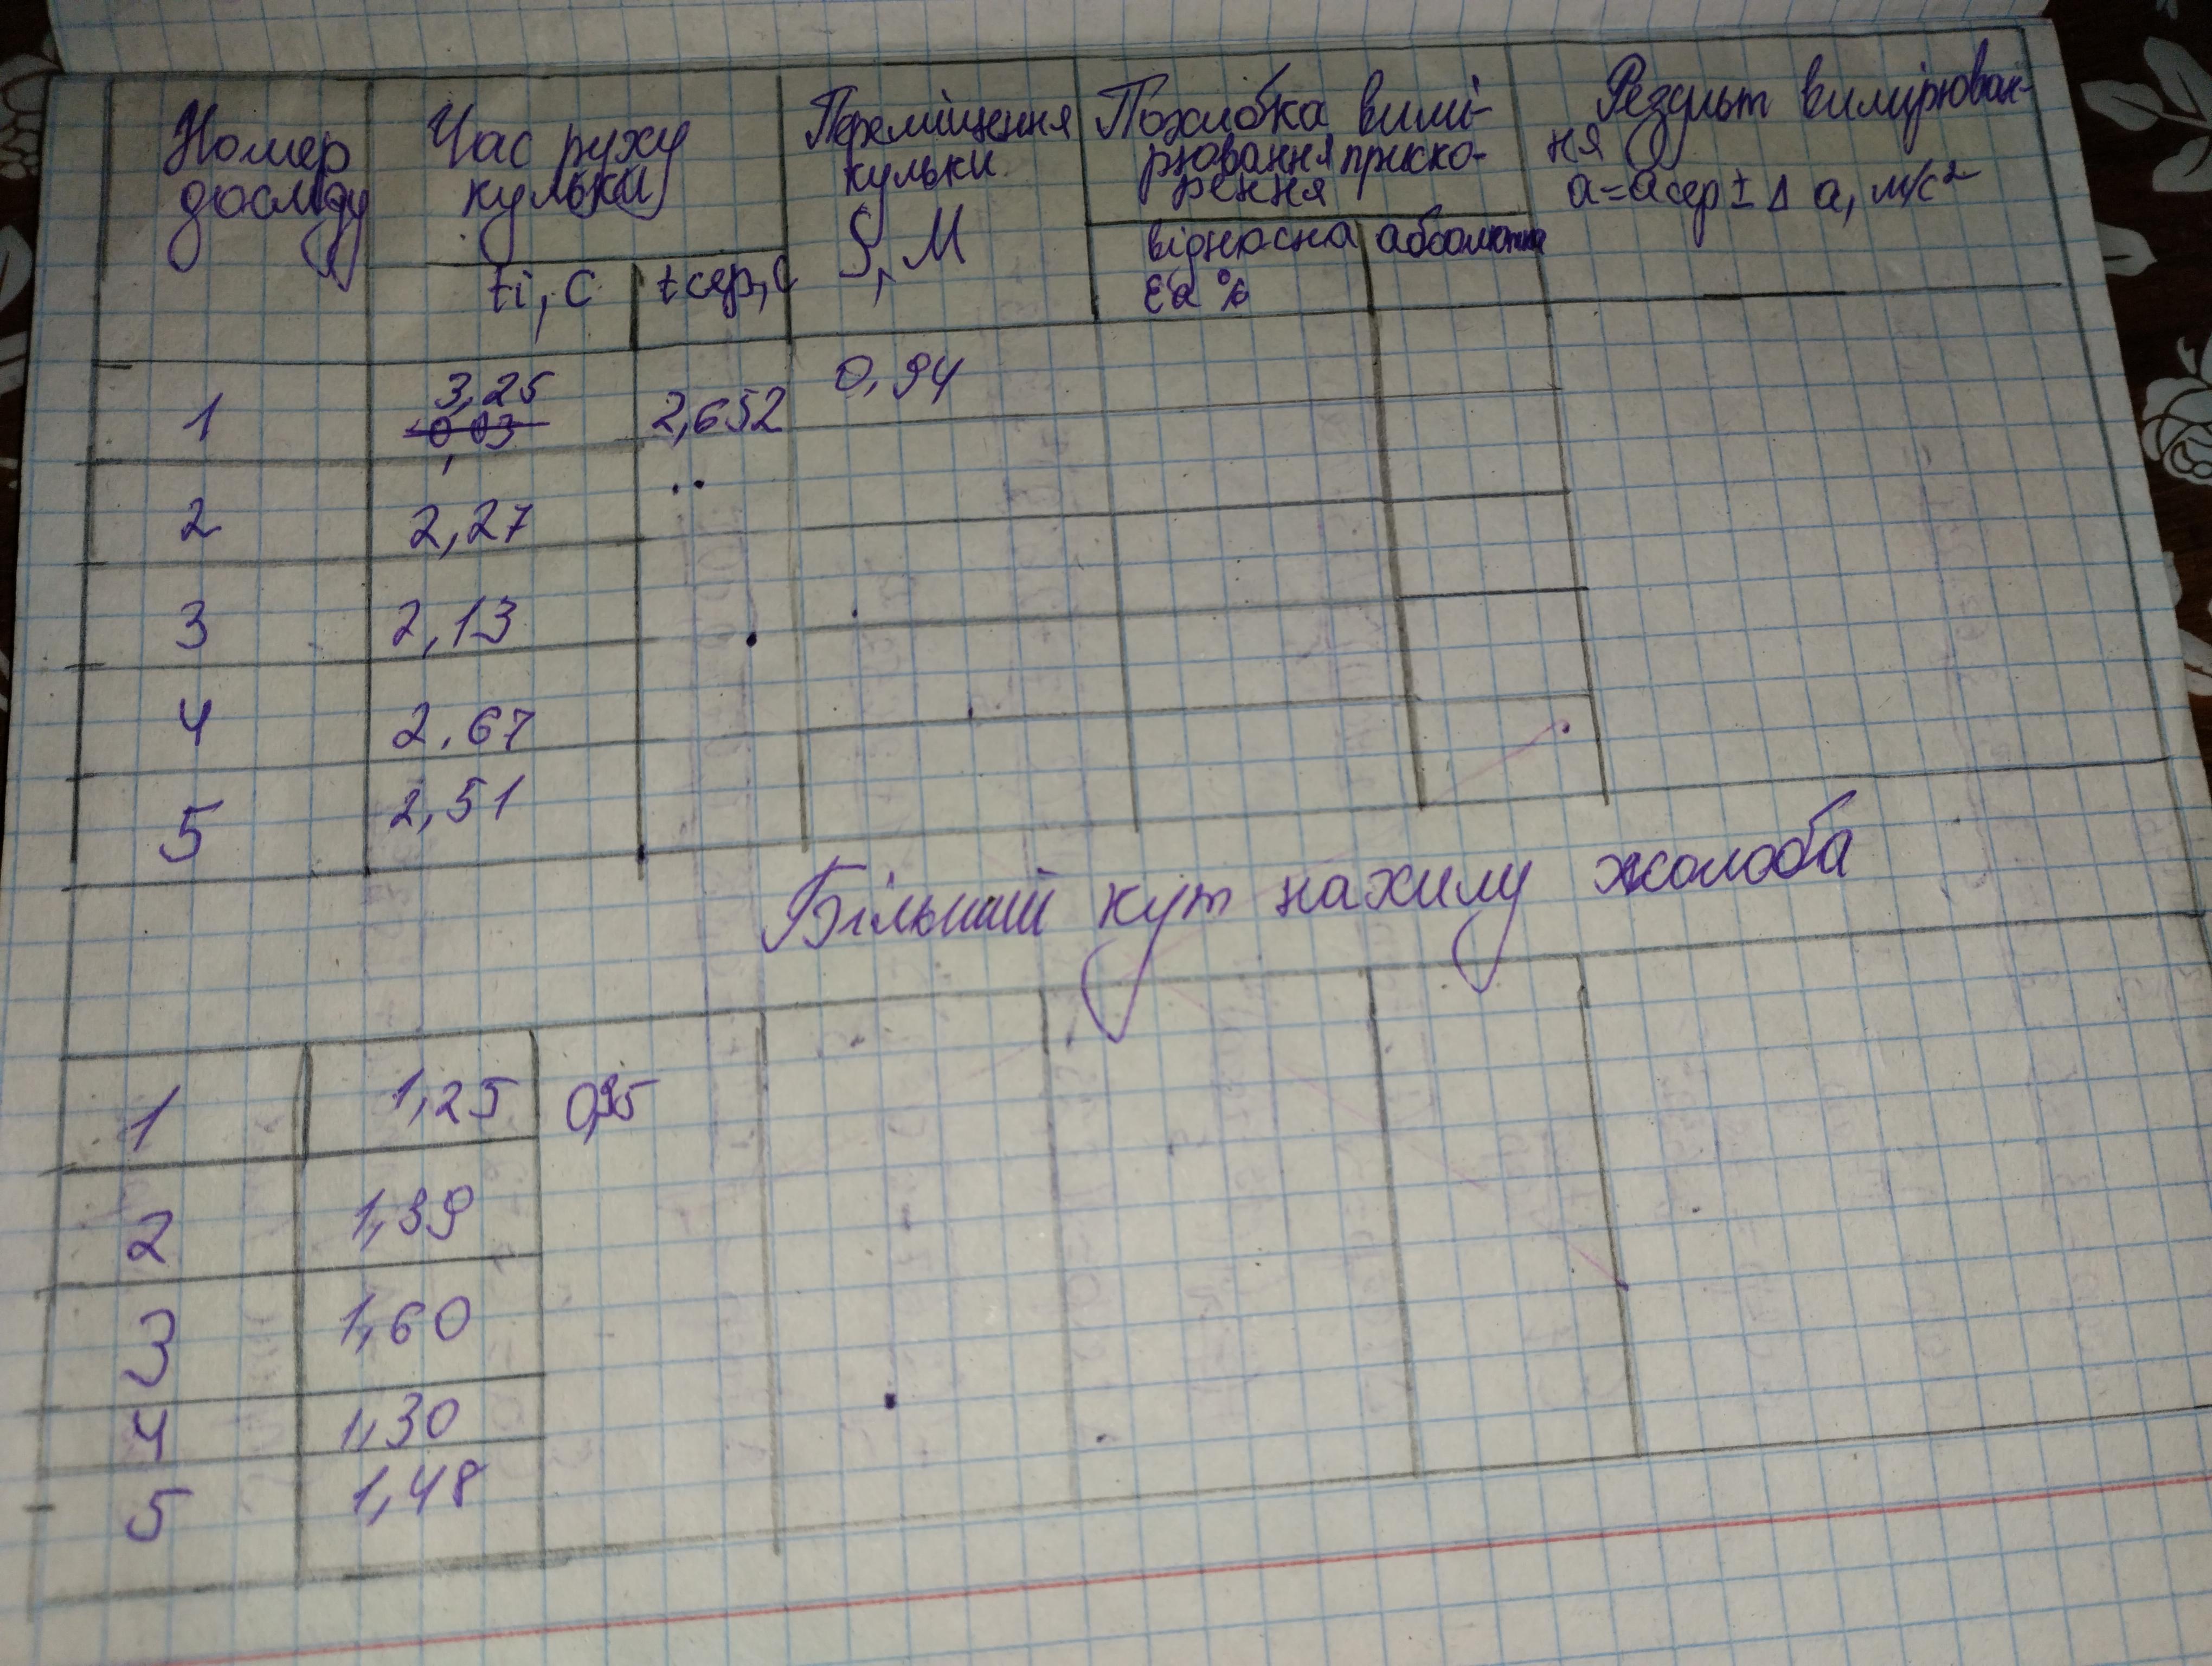 Номер
досліду
Час руху
кульки
Переміщення
кульки
S, М
Похибка вимі-
рювання приско-
рення
Результ вимірюван-
ня
a = a сер ± Δ a, м/с²
ti, c
t сер, c
відносна
εa %
абсолютна
1 3,25 2,652 0,94
0,03
2 2,27
3 2,13
4 2,67
5 2,51
Більший кут нахилу жолоба
1 1,25 0,95
2 1,39
3 1,60
4 1,30
5 1,48